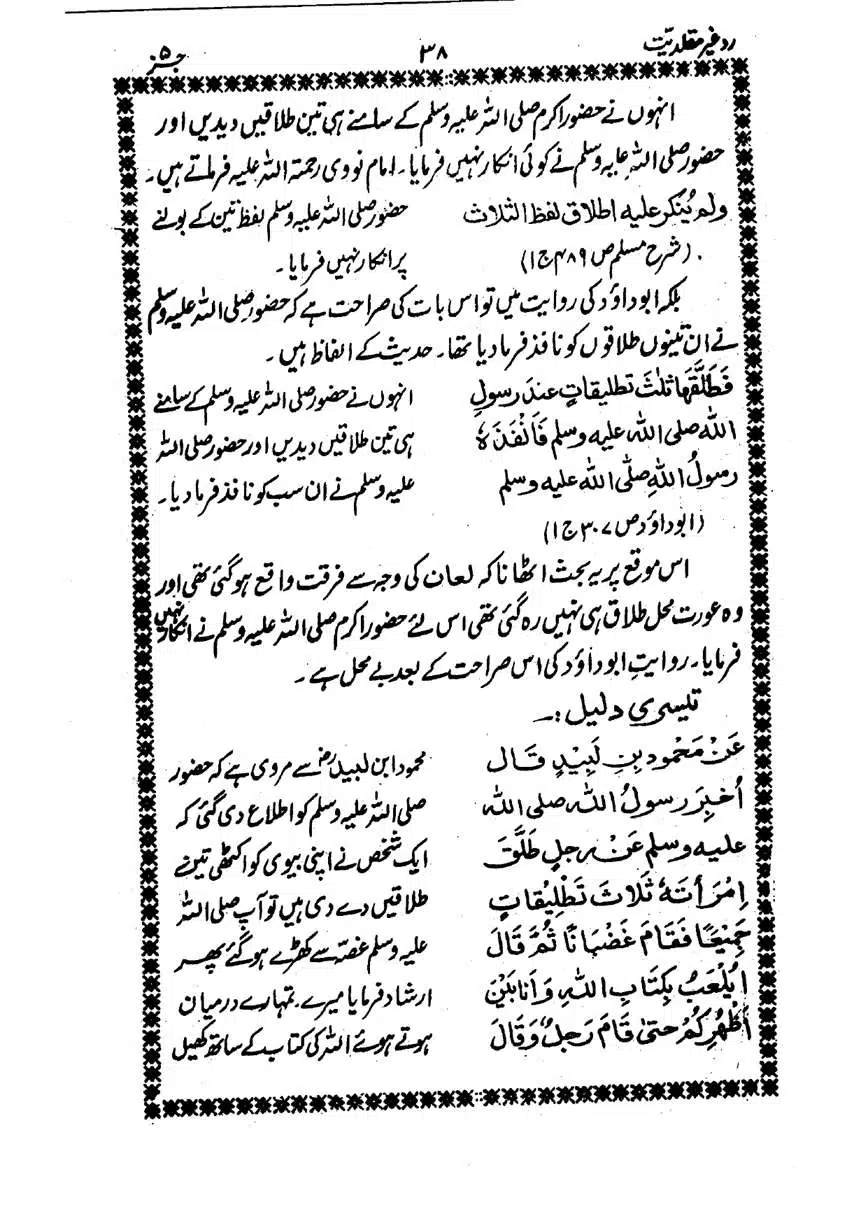 رد غیر مقلدیت
۳۸
جز ۵
انہوں نے حضور اکرم صلی اللہ علیہ وسلم کے سامنے ہی تین طلاقیں دیدیں اور
حضور صلی اللہ علیہ وسلم نے کوئی انکار نہیں فرمایا۔ امام نووی رحمۃ اللہ علیہ فرماتے ہیں۔
ولم يُنكر عليه اطلاق لفظ الثلاث
(شرح مسلم ص ۴۸۹ ج ۱)
حضور صلی اللہ علیہ وسلم لفظ تین کے بولنے
پر انکار نہیں فرمایا۔
بلکہ ابوداؤد کی روایت میں تو اس بات کی صراحت ہے کہ حضور صلی اللہ علیہ وسلم
نے ان تینوں طلاقوں کو نافذ فرما دیا تھا۔ حدیث کے الفاظ ہیں۔
فَطَلَّقَهَا ثلٰثَ تطليقاتٍ عند رسولِ
اللہ صلی اللہ علیہ وسلم فَاَنْفَذَہٗ
رسولُ اللہِ صلَّی اللہ علیہ وسلم
(ابوداؤد ص ۳۰۷ ج ۱)
انہوں نے حضور صلی اللہ علیہ وسلم کے سامنے
ہی تین طلاقیں دیدیں اور حضور صلی اللہ
علیہ وسلم نے ان سب کو نافذ فرما دیا۔
اس موقع پر یہ بحث اٹھانا کہ لعان کی وجہ سے فرقت واقع ہوگئی تھی اور
وہ عورت محل طلاق ہی نہیں رہ گئی تھی اس لئے حضور اکرم صلی اللہ علیہ وسلم نے انکار نہیں
فرمایا۔ روایتِ ابوداؤد کی اس صراحت کے بعد بے محل ہے۔
تیسری دلیل:۔
عَنْ مَحْمُود بنِ لَبِيْدٍ قَال
اُخبِرَ رسولُ اللہ صلی اللہ
علیہ وسلم عَنْ رجلٍ طَلَّقَ
اِمْرَأتَهٗ ثَلَاثَ تَطْلِيْقَاتٍ
جَمِيْعًا فَقَامَ غَضْبَانًا ثُمَّ قَالَ
اَيُلْعَبُ بِكِتَابِ اللہِ وَاَنَا بَيْنَ
اَظْهُرِكُمْ حتیٰ قَامَ رَجلٌ وَقَالَ
محمود ابن لبیدؓ سے مروی ہے کہ حضور
صلی اللہ علیہ وسلم کو اطلاع دی گئی کہ
ایک شخص نے اپنی بیوی کو اکٹھی تین
طلاقیں دے دی ہیں تو آپ صلی اللہ
علیہ وسلم غصّہ سے کھڑے ہوگئے پھر
ارشاد فرمایا میرے تمہارے درمیان
ہوتے ہوئے اللہ کی کتاب کے ساتھ کھیل